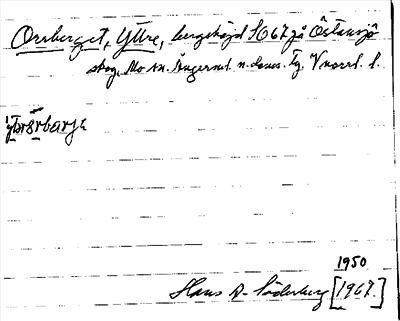 Orrberget, Yttre, bergshöjd SO 667 på Östansjö
skog, Mo sn. Ångerml. n. doms. Tg. V norrl. l.
1950
Hans A-Söderberg [1967]